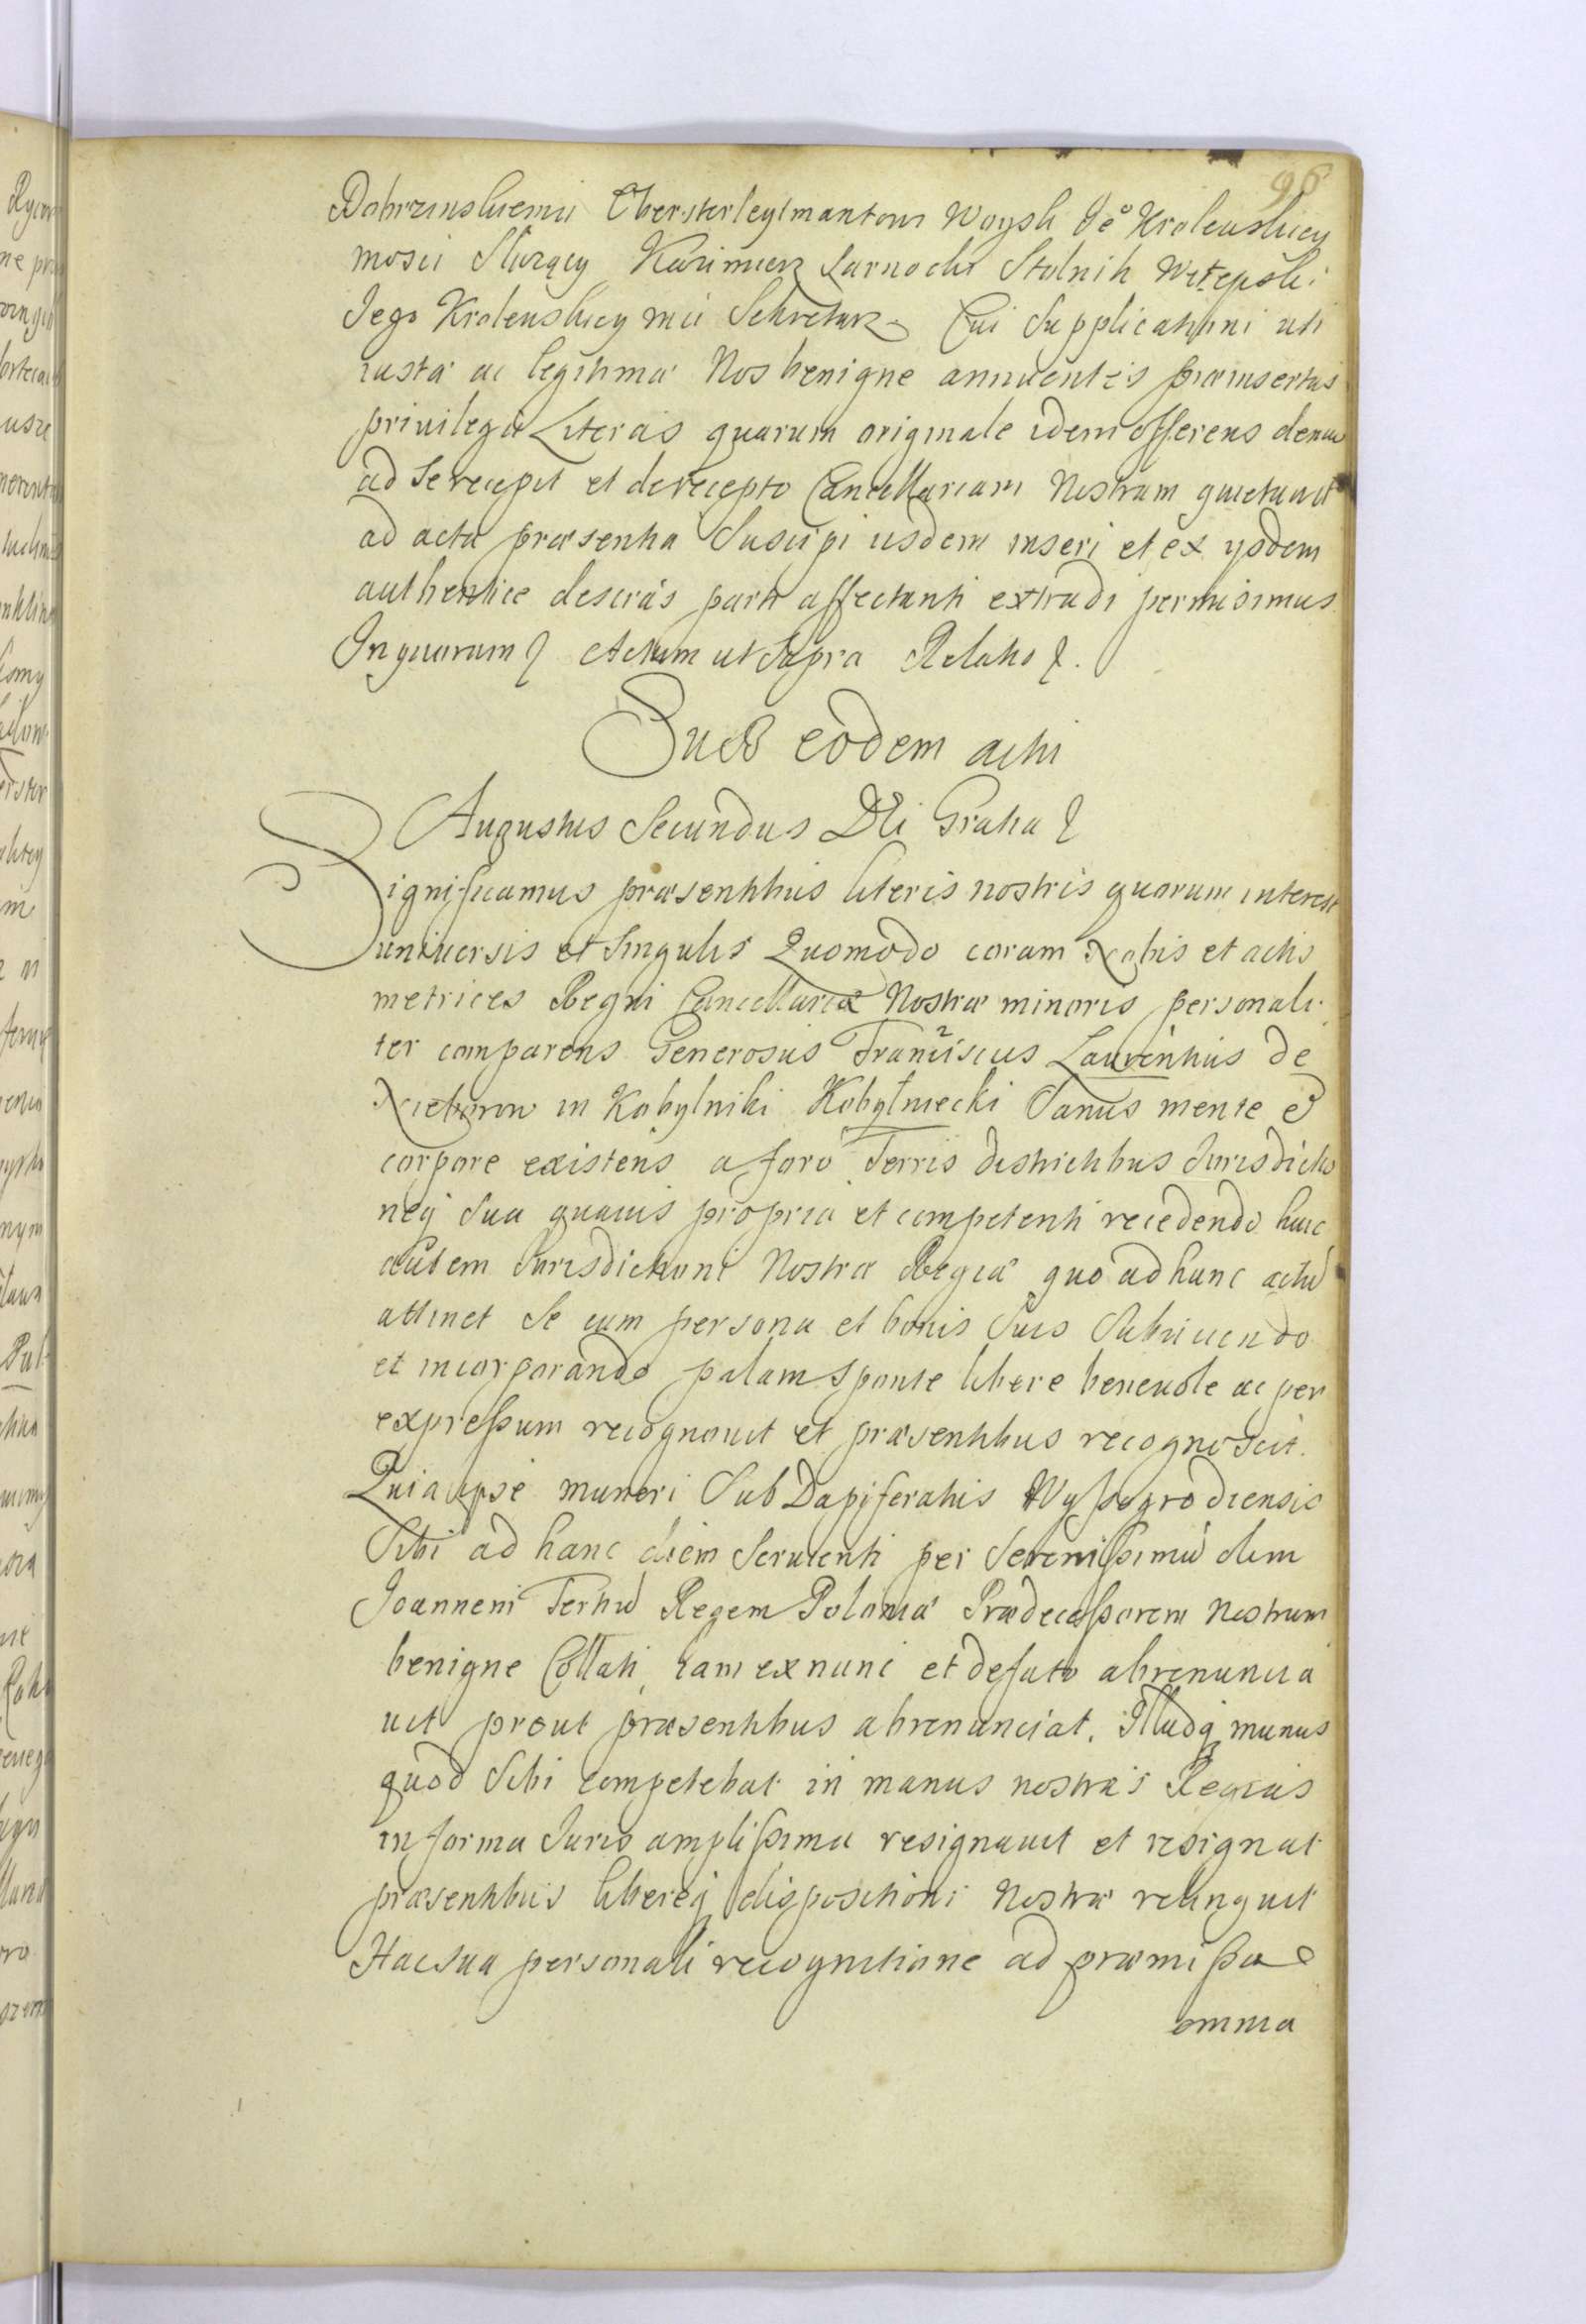 96
Dobrzinskiemu Obersterleytmantowi Woysk Jeo Krolewskiey
mosci Slurący Kazimierz Larnocki Stolnik Witepski
Jego Krolewskiey mci Sekretarz. Cui Supplicationi uti
iustæ ac legitimæ Nos benigne annuentes præinsertas
privilegij Literas quarum originale idem offerens denuo
ad Se recepit et de recepto Cancellariam Nostram quietavit
ad acta præsentia Suscipi iisdem inseri et ex ysdem
authentice descrás parti affectanti extradi permisimus
In quorum ℓ Actum ut Supra Relatio ℓ.
Sub eodem actu
Augustus Secundus Dei Gratia ℓ
Significamus præsentibus literis nostris quorum interest
universis et Singulis Quomodo coram Nobis et actis
metrices Regni Cancellariæ Nostræ minoris personali
ter comparens Generosus Franciscus Laurentius de
Nieborow in Kobylniki Kobylniecki Sanus mente et
corpore existens a foro Terris districtibus Jurisdictio
neq Sua quavis propria et competenti recedendo huic
autem Jurisdictioni Nostræ Regiæ quo ad hunc actū
attinet Se cum persona et bonis Suis Subijciendo
et incorporando palam Sponte libere benevole ac per
expressum recognovit et præsentibus recognoscit.
Quia ipse muneri Sub Dapiferatus Wyssogrodiensis
Sibi ad hanc diem Servienti per Serenissimū olim
Joannem Tertiū Regem Poloniæ Prædecessorem Nostrum
benigne Collati, iam ex nunc et de facto abrenuncia
vit prout præsentibus abrenunciat. Illudq munus
quod Sibi competebat in manus nostras Regias
in forma Juris amplissima resignavit et resignat
præsentibus libereq dispositioni Nostræ relinquit
Hac sua personali recognitione ad præmissa
omnia